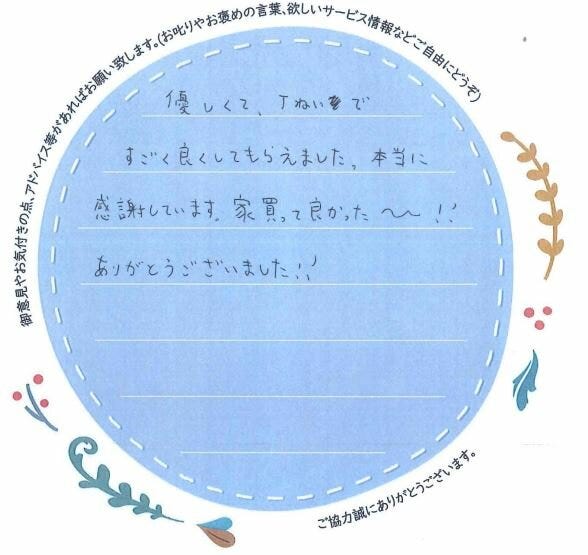 御意見やお気付きの点、アドバイス等があればお願い致します。(お叱りやお褒めの言葉、欲しいサービス情報などご自由にどうぞ)
優しくて、丁ねいで
すごく良くしてもらえました。本当に
感謝しています。家買って良かった〜〜!!
ありがとうございました!!
ご協力誠にありがとうございます。